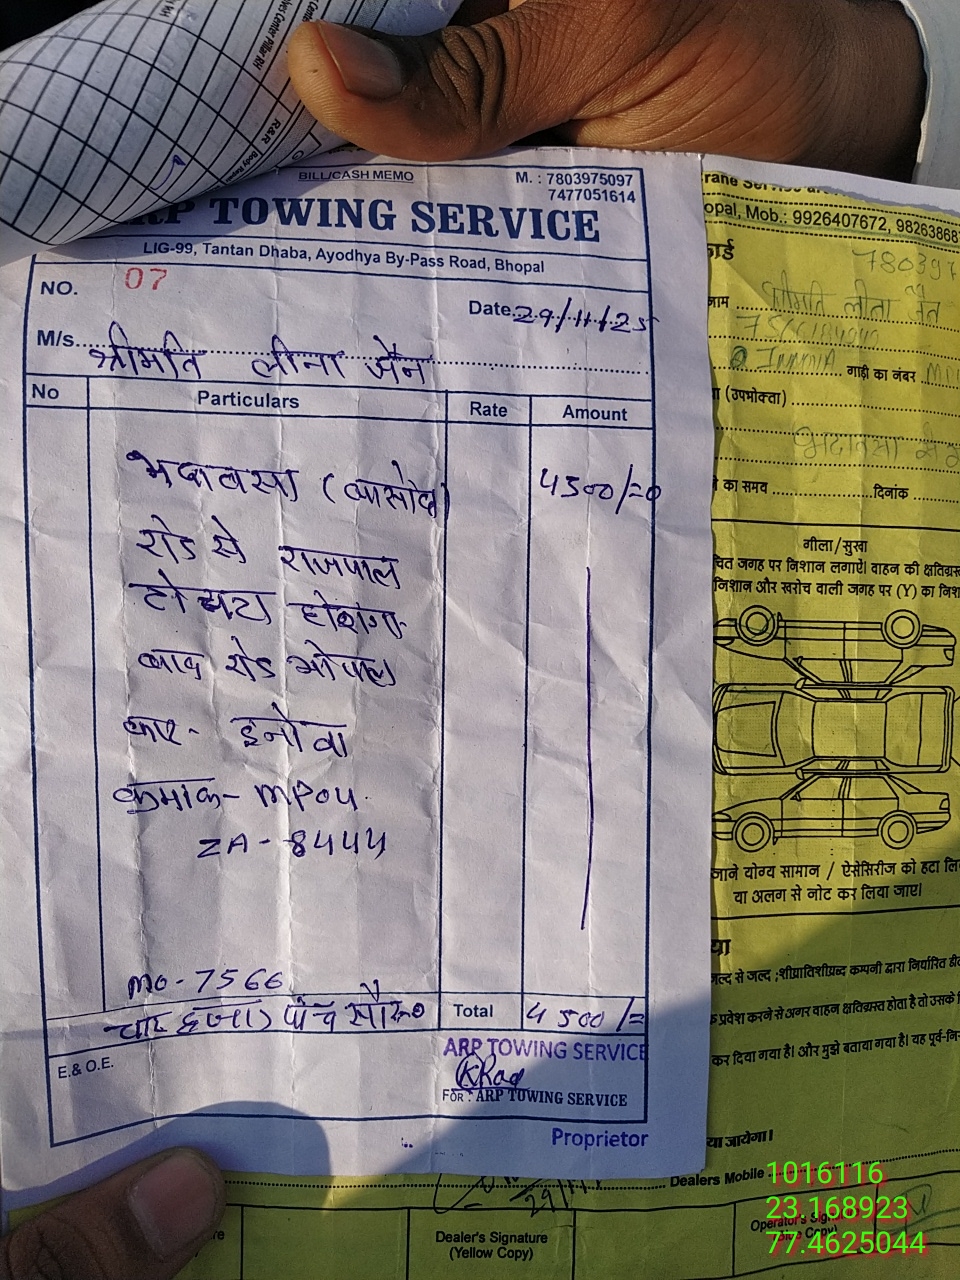 BILL/CASH MEMO
M. : 7803975097
7477051614
ARP TOWING SERVICE
LIG-99, Tantan Dhaba, Ayodhya By-Pass Road, Bhopal
NO. 07
Date. 29/11/25
M/s. श्रीमति लीना जैन
No Particulars Rate Amount
भदावसा (बासोदा) 4500/=0
रोड से राजपाल
टोयटा होशंगा
बाद रोड भोपाल
कार- इनोवा
क्रमांक- MP04
ZA-8444
mo-7566
चार हजार पाँच सौ रु० Total 4500/=
E.& O.E.
ARP TOWING SERVICE
FOR : ARP TOWING SERVICE
Proprietor
Center Pillar RH
R&R
opal, Mob.: 9926407672, 98263868
780397
नाम श्रीमति लीना जैन
गाड़ी का नंबर
(उपभोक्ता)
का समय दिनांक
गीला/सुखा
चित जगह पर निशान लगाऐं। वाहन की क्षतिग्रस्
निशान और खरोच वाली जगह पर (Y) का निश
जाने योग्य सामान / ऐसेसिरीज को हटा लि
या अलग से नोट कर लिया जाए।
जल्द से जल्द ;शीघ्रातिशीघ्रद्ध कम्पनी द्वारा निर्धारित डी
प्रवेश करने से अगर वाहन क्षतिग्रस्त होता है तो उसके
कर दिया गया है। और मुझे बताया गया है। यह पूर्व-नि
या जायेगा।
Dealers Mobile
29/11
Dealer's Signature
(Yellow Copy)
Operator's Sign
Copy)
1016116
23.168923
77.4625044